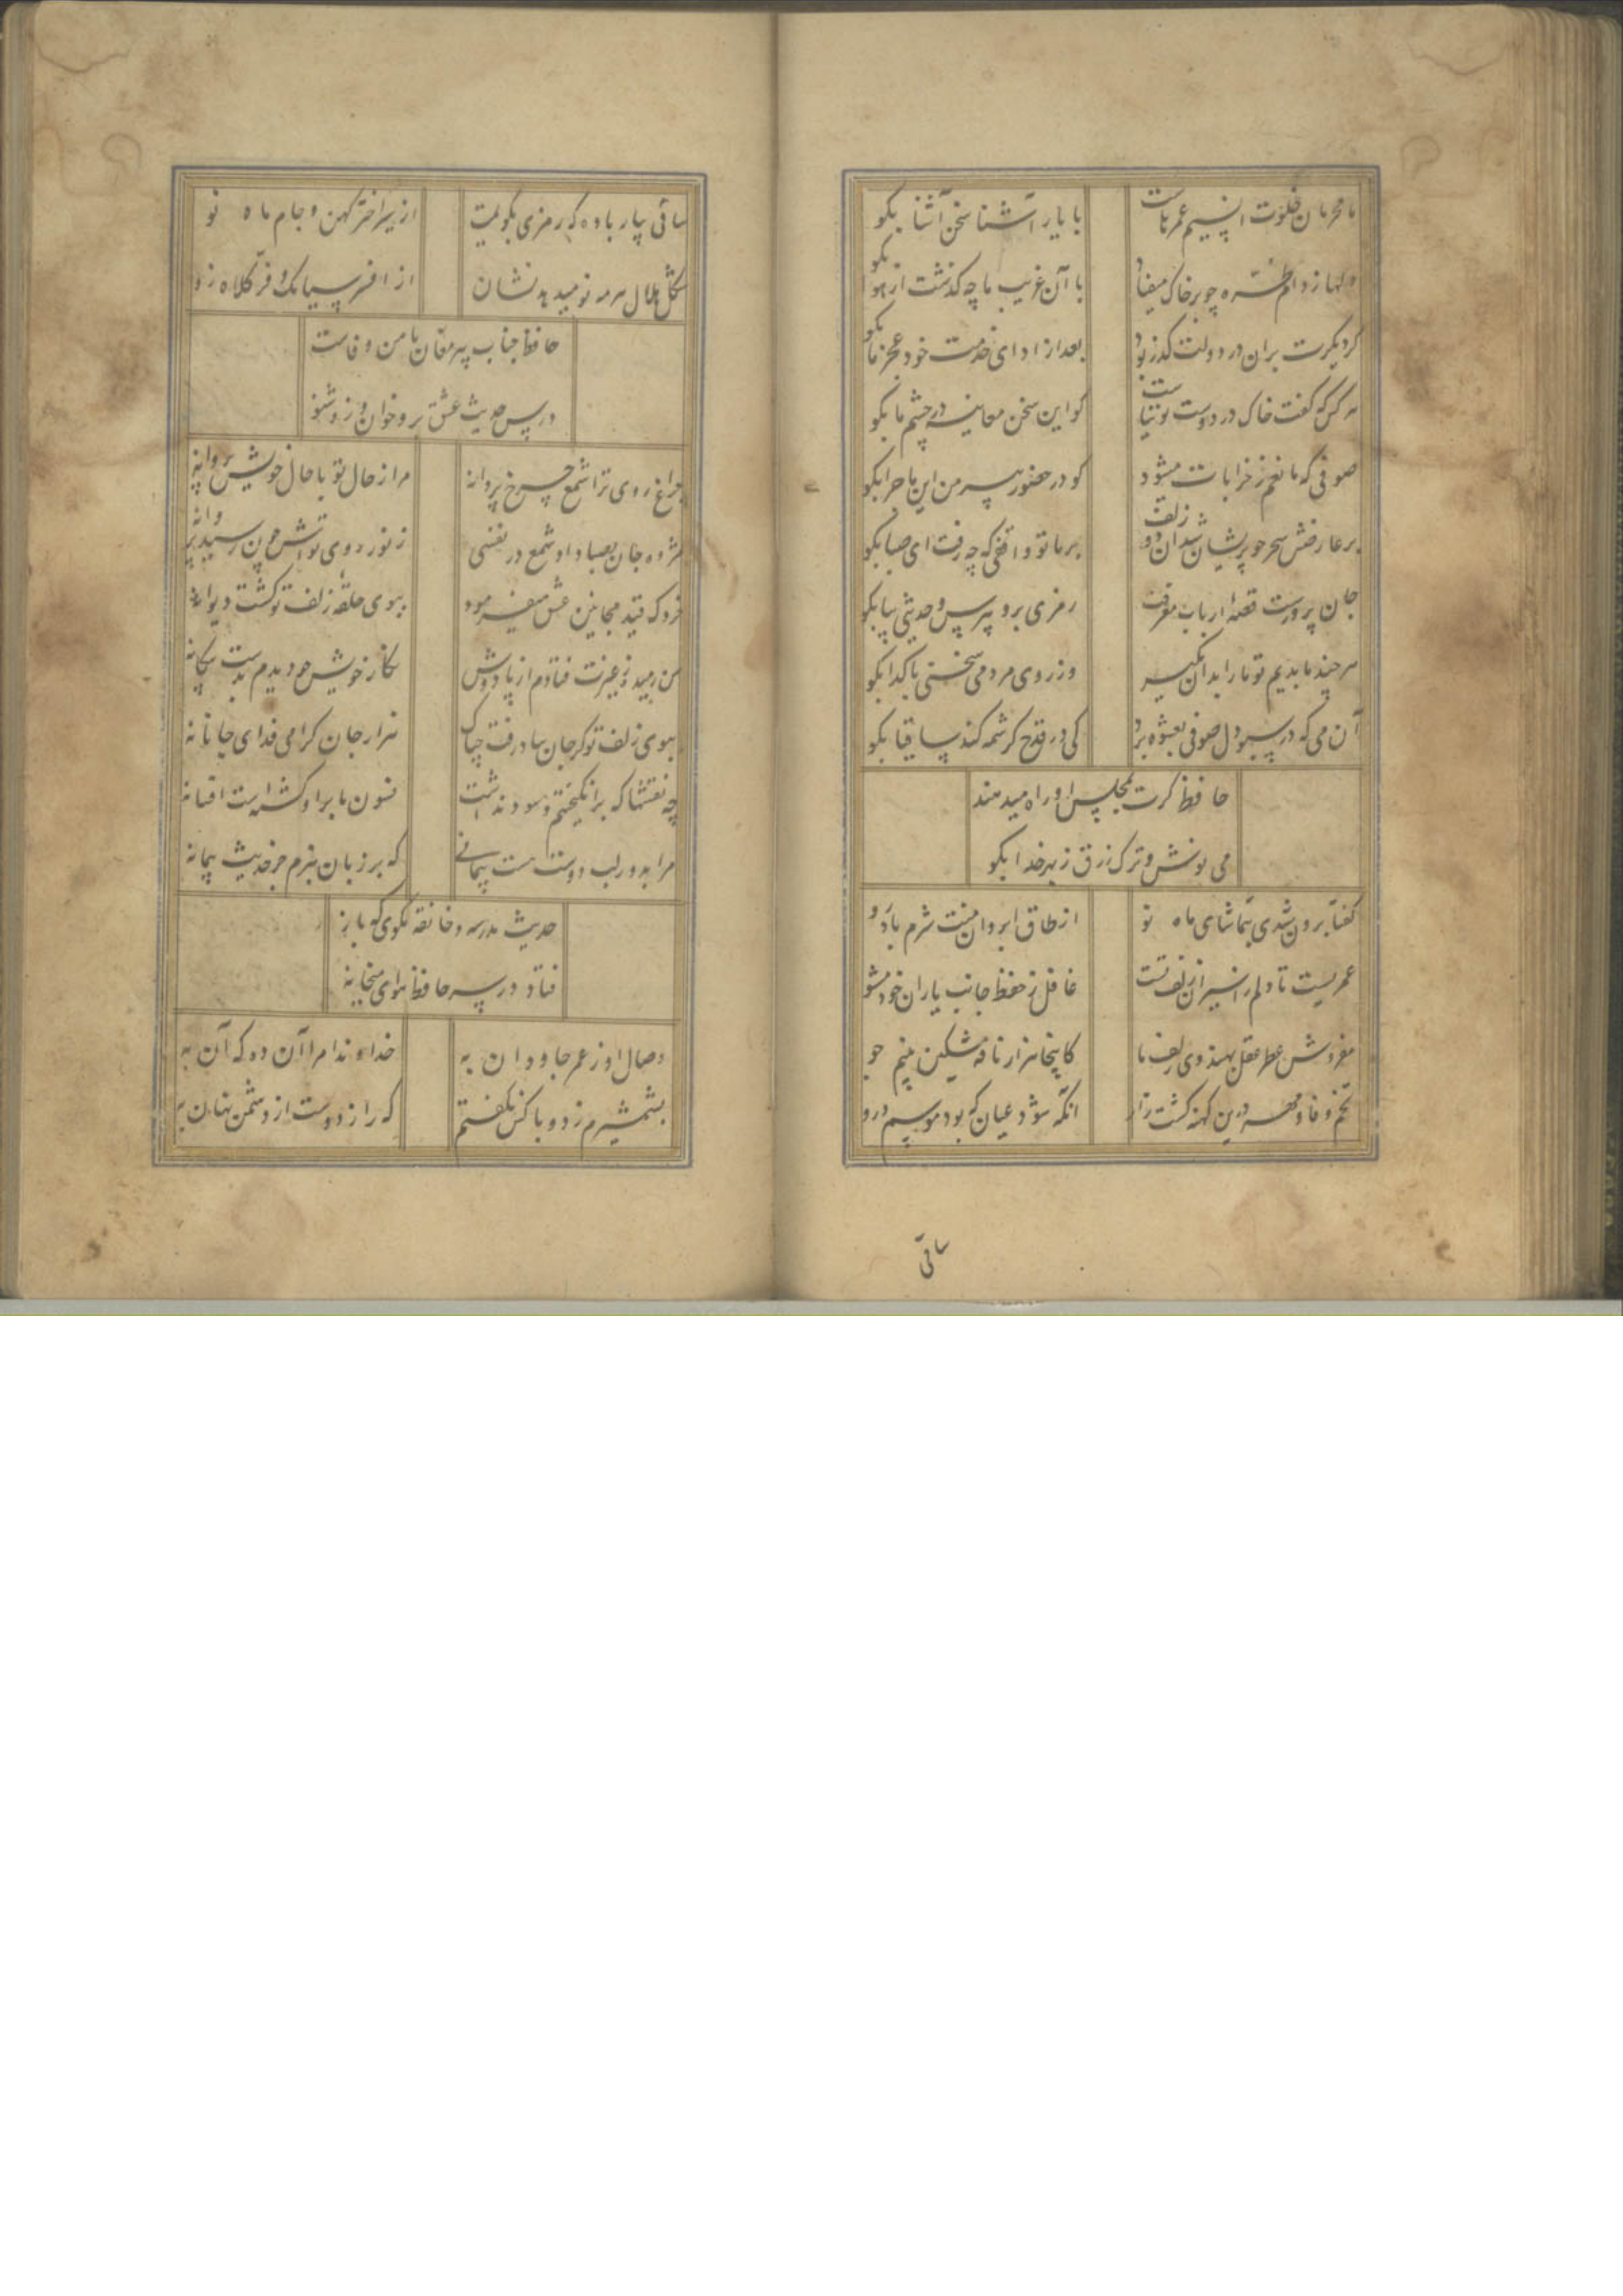 ما محرمان خلوت انسیم غم مخور
با یار آشنا سخن آشنا بگو
دلها ز دام طره چو بر خاک میفشاند
با آن غریب ما چه گذشت از هوا بگو
گر دیگرت بران در دولت گذر بود
بعد از ادای خدمت خود عجز ما بگو
هر کس که گفت خاک در دوست توتیاست
گو این سخن معاینه در چشم ما بگو
صوفی که مانعم ز خرابات میشود
گو در حضور پیر من این ماجرا بگو
بر عارضش سحر چو پریشان شد آن دو زلف
بر ما تو واقفی که چه رفت ای صبا بگو
جان پرورست قصهٔ ارباب معرفت
رمزی برو بپرس و حدیثی بیا بگو
هر چند ما بدیم تو ما را بدان مگیر
وز روی مردمی سخنی با گدا بگو
آن می که در سبو دل صوفی بعشوه برد
کی در قدح کرشمه کند ساقیا بگو
حافظ گرت بمجلس او راه میدهند
می نوش و ترک زرق ز بهر خدا بگو
گفتا برون شدی بتماشای ماه نو
از طاق ابروان منت شرم باد رو
عمریست تا دلم ز اسیران زلف تست
غافل ز حفظ جانب یاران خود مشو
مفروش عطر عقل بهندوی زلف ما
کاینجا هزار نافه مشکین بنیم جو
تخم وفا و مهر درین کهنه کشت زار
انگه شود عیان که بود موسم درو
ساقی
ساقی بیار باده که رمزی بگویمت
از سر اختر کهن و جام ماه نو
شکل هلال هر مه نو میدهد نشان
از افسر سیامک و فر کلاه زو
حافظ جناب پیر مغان مامن وفاست
درس حدیث عشق برو خوان و زو شنو
چراغ روی ترا شمع چرخ پروانه
مرا ز حال تو با حال خویش پروا نه
مژده جان بصبا داد شمع در نفسی
ز نور روی تواش چون رسید پروانه
خرد که قید مجانین عشق میفرمود
ببوی حلقه زلف تو گشت دیوانه
من رمیده ز غیرت فتادم از پا دوش
نگار خویش چو دیدم بدست بیگانه
ببوی زلف تو گر جان بباد رفت چه باک
هزار جان گرامی فدای جانانه
چه نقشها که برانگیختیم و سود نداشت
فسون ما بر او گشته است افسانه
مرا بدور لب دوست هست پیمانی
که بر زبان نبرم جز حدیث پیمانه
حدیث مدرسه و خانقه مگوی که باز
فتاد در سر حافظ هوای میخانه
وصال او ز عمر جاودان به
خداوندا مرا آن ده که آن به
بشمشیرم زد و با کس نگفتم
که راز دوست از دشمن نهان به